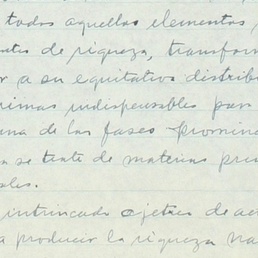 todos aquellos elementos
de riqueza, transform
r a su equitativa distrib
rimas indispensables par
una de las fases promin
n se trate de materias pri
bles.
intrincado de ac
a producir la riqueza na